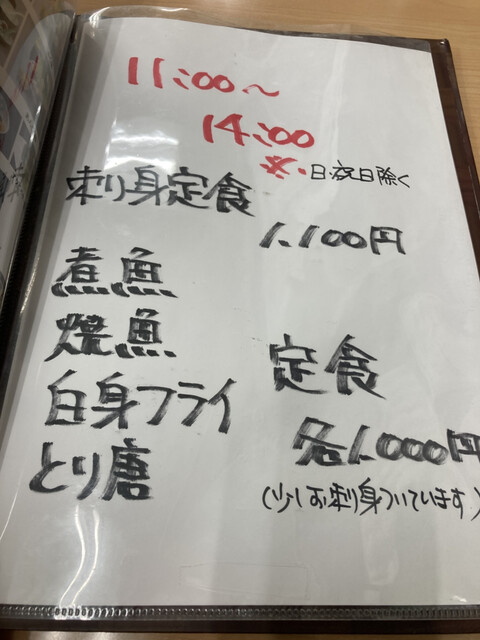 11:00〜
14:00
※日・祝日除く
刺身定食
1,100円
煮魚
焼魚
白身フライ
とり唐
定食
各1,000円
(少しお刺身ついています)